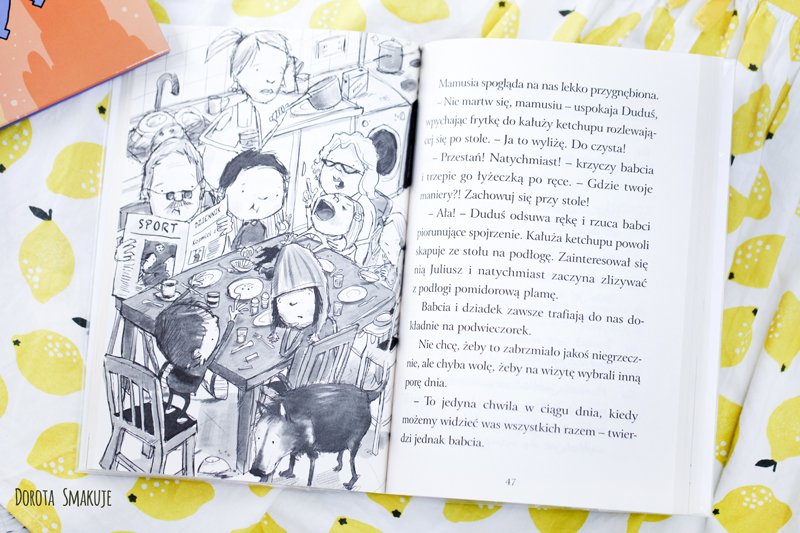 SPORT
DZIENNIK
Mamusia spogląda na nas lekko przygnębiona.
– Nie martw się, mamusiu – uspokaja Duduś,
wpychając frytkę do kałuży ketchupu rozlewają-
cej się po stole. – Ja to wyliżę. Do czysta!
– Przestań! Natychmiast! – krzyczy babcia
i trzepie go łyżeczką po ręce. – Gdzie twoje
maniery?! Zachowuj się przy stole!
– Ała! – Duduś odsuwa rękę i rzuca babci
piorunujące spojrzenie. Kałuża ketchupu powoli
skapuje ze stołu na podłogę. Zainteresował się
nią Juliusz i natychmiast zaczyna zlizywać
z podłogi pomidorową plamę.
Babcia i dziadek zawsze trafiają do nas do-
kładnie na podwieczorek.
Nie chcę, żeby to zabrzmiało jakoś niegrzecz-
nie, ale chyba wolę, żeby na wizytę wybrali inną
porę dnia.
– To jedyna chwila w ciągu dnia, kiedy
możemy widzieć was wszystkich razem – twier-
dzi jednak babcia.
47
DOROTA SMAKUJE